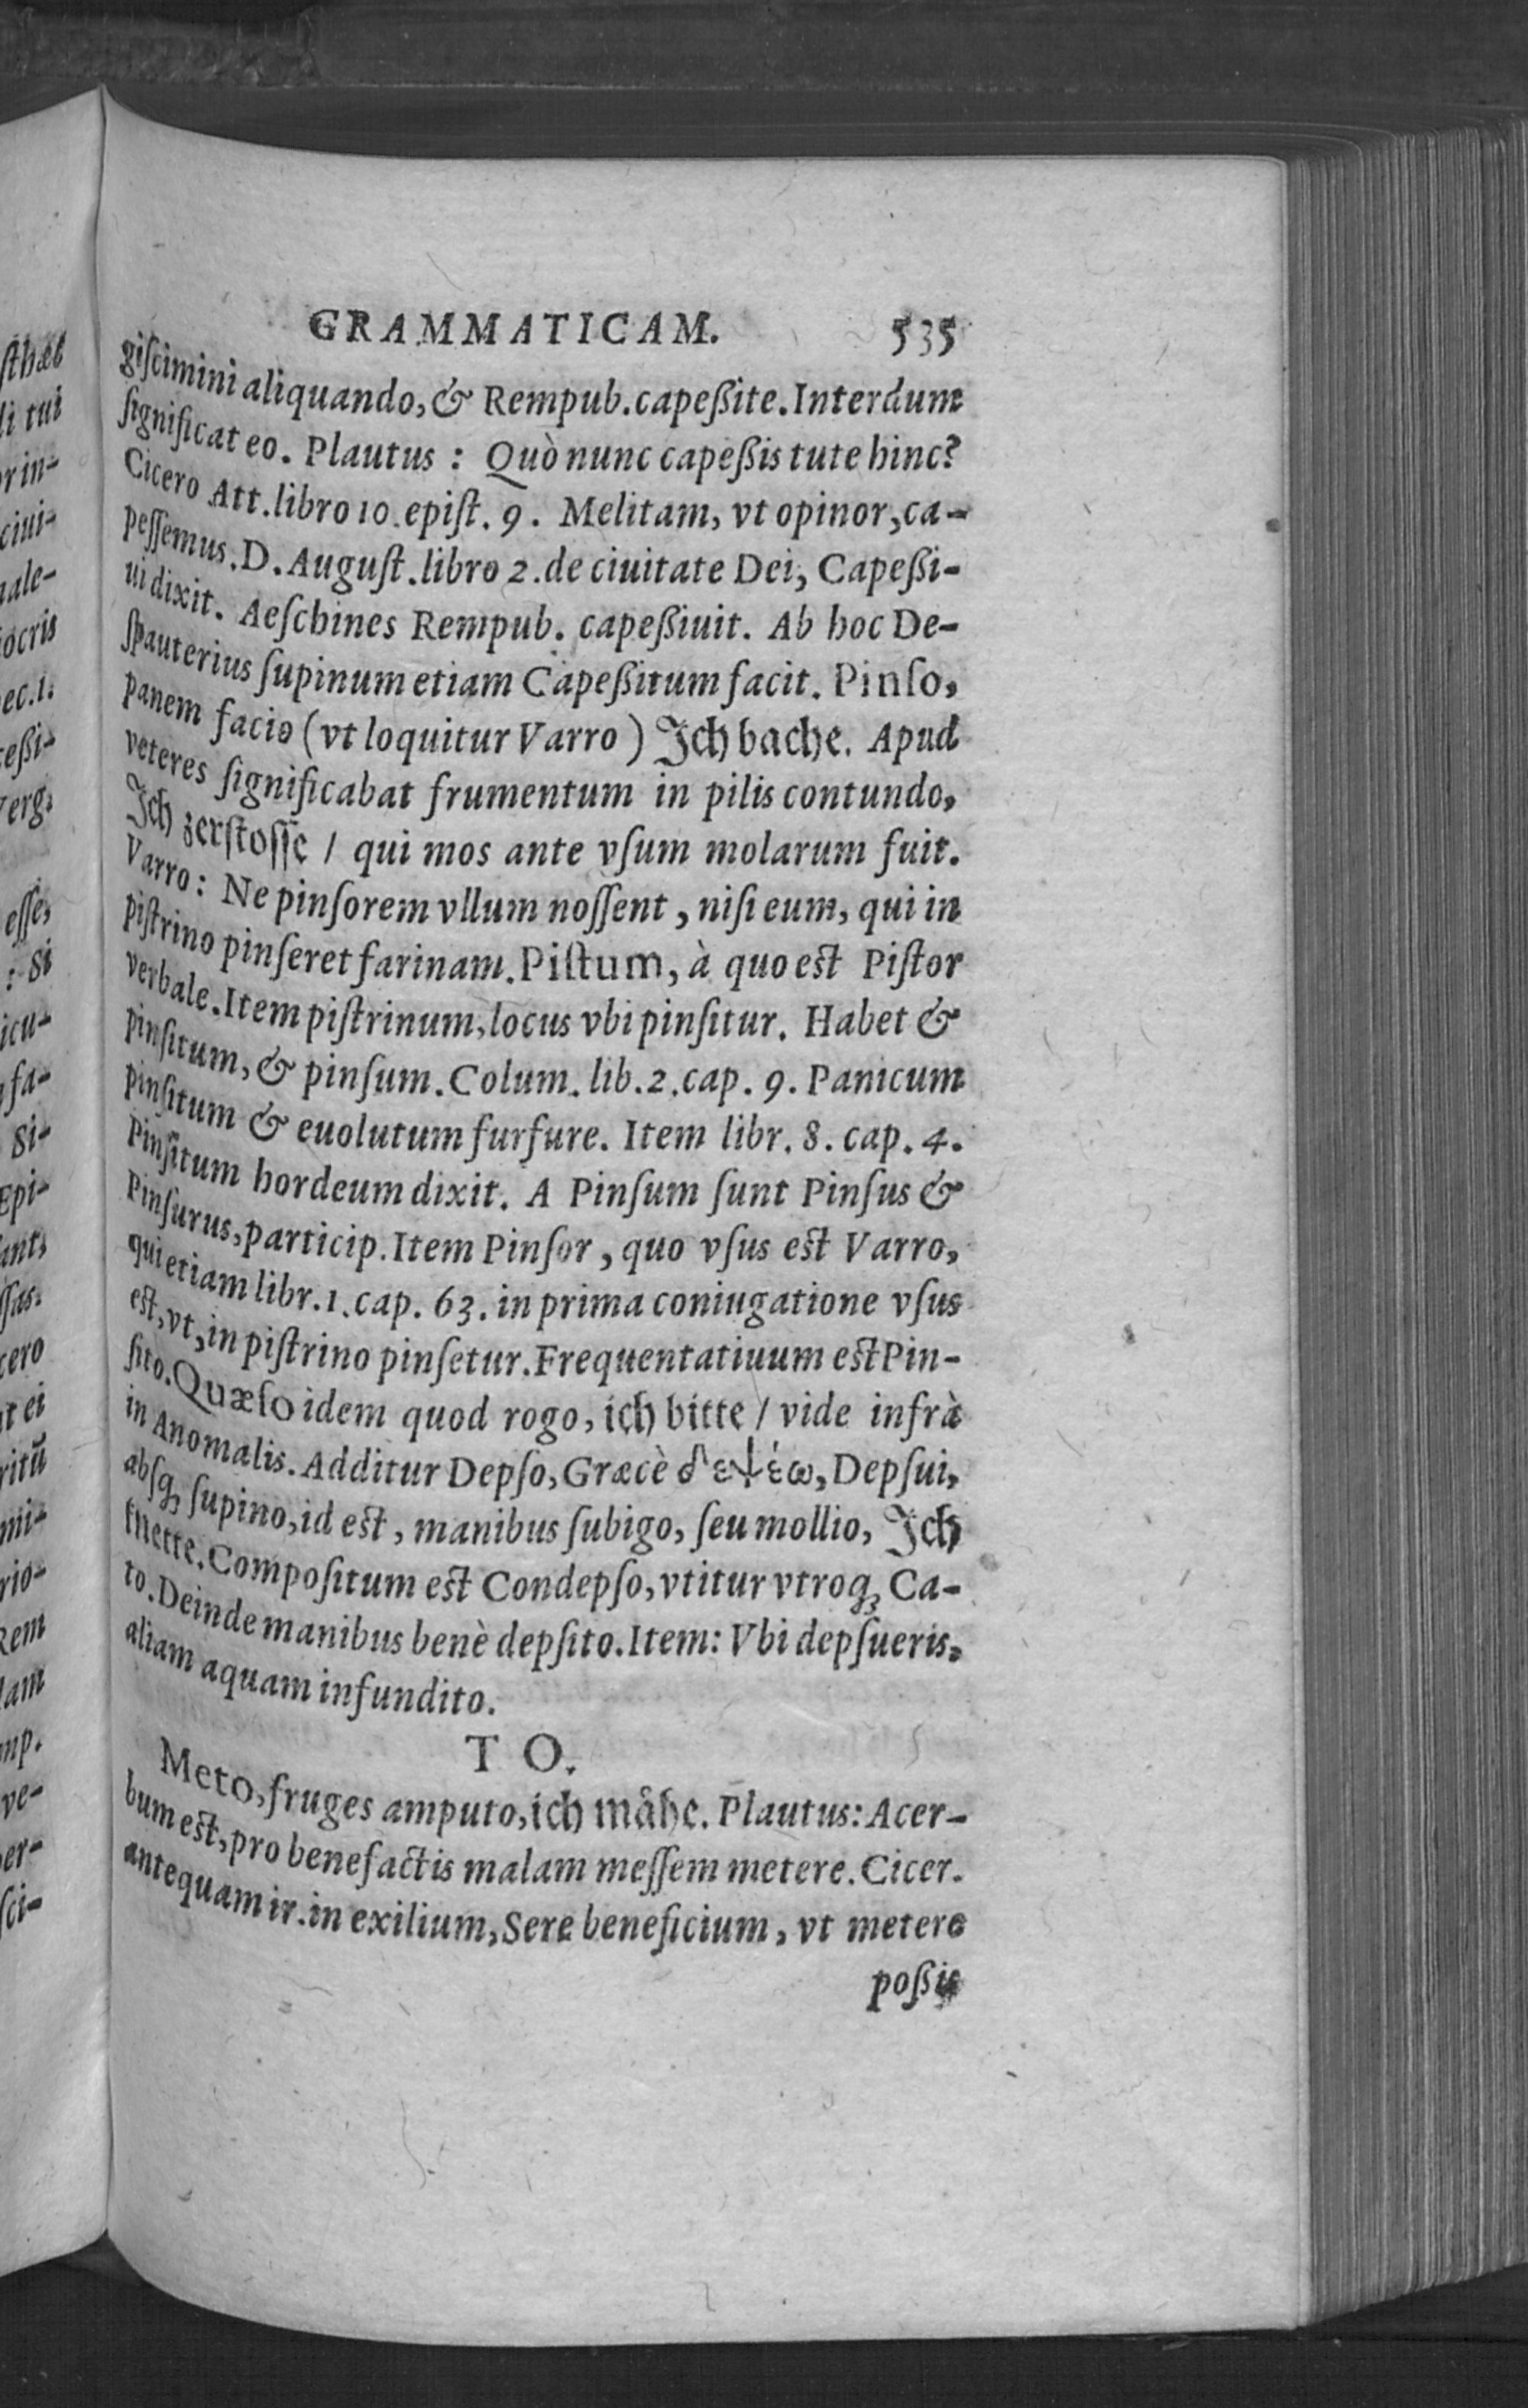 GRAMMATICAM. 535
giſcimini aliquando, & Rempub. capeßite. Interdum
ſignificat eo. Plautus : Quò nunc capeßis tute hinc?
Cicero Att. libro 10. epiſt. 9. Melitam, vt opinor, ca-
peſſemus. D. Auguſt. libro 2. de ciuitate Dei, Capeßi-
ui dixit. Aeſchines Rempub. capeßiuit. Ab hoc De-
ſpauterius ſupinum etiam Capeßitum facit. Pinſo,
panem facio (vt loquitur Varro) Jch bache. Apud
veteres ſignificabat frumentum in pilis contundo,
Jch zerſtoſſe / qui mos ante vſum molarum fuit.
Varro: Ne pinſorem vllum noſſent, niſi eum, qui in
piſtrino pinſeret farinam. Piſtum, à quo est Piſtor
verbale. Item piſtrinum, locus vbi pinſitur. Habet &
pinſitum, & pinſum. Colum. lib. 2. cap. 9. Panicum
pinſitum & euolutum furfure. Item libr. 8. cap. 4.
Pinſitum hordeum dixit. A Pinſum ſunt Pinſus &
Pinſurus, particip. Item Pinſor, quo vſus est Varro,
qui etiam libr. 1. cap. 63. in prima coniugatione vſus
est, vt, in piſtrino pinſetur. Frequentatiuum est Pin-
ſito. Quæſo idem quod rogo, ich bitte / vide infrà
in Anomalis. Additur Depſo, Græcè δεψέω, Depſui,
abſq; ſupino, id est, manibus ſubigo, ſeu mollio, Jch
knette. Compoſitum est Condepſo, vtitur vtroq; Ca-
to. Deinde manibus benè depſito. Item: Vbi depſueris,
aliam aquam infundito.
TO.
Meto, fruges amputo, ich måhe. Plautus: Acer-
bum est, pro benefactis malam meſſem metere. Cicer.
antequam ir. in exilium, Sere beneficium, vt metere
poßis
ſthæt
li tui
rin-
ciui-
ale-
ocris
ec. 1.
eßi-
erg.
eſſe,
: Si
icu-
fa-
Si-
Epi-
ant,
ſſas.
cero
t ei
ritū
mi-
rio-
Rem
lam
mp.
ve-
er-
ſci-